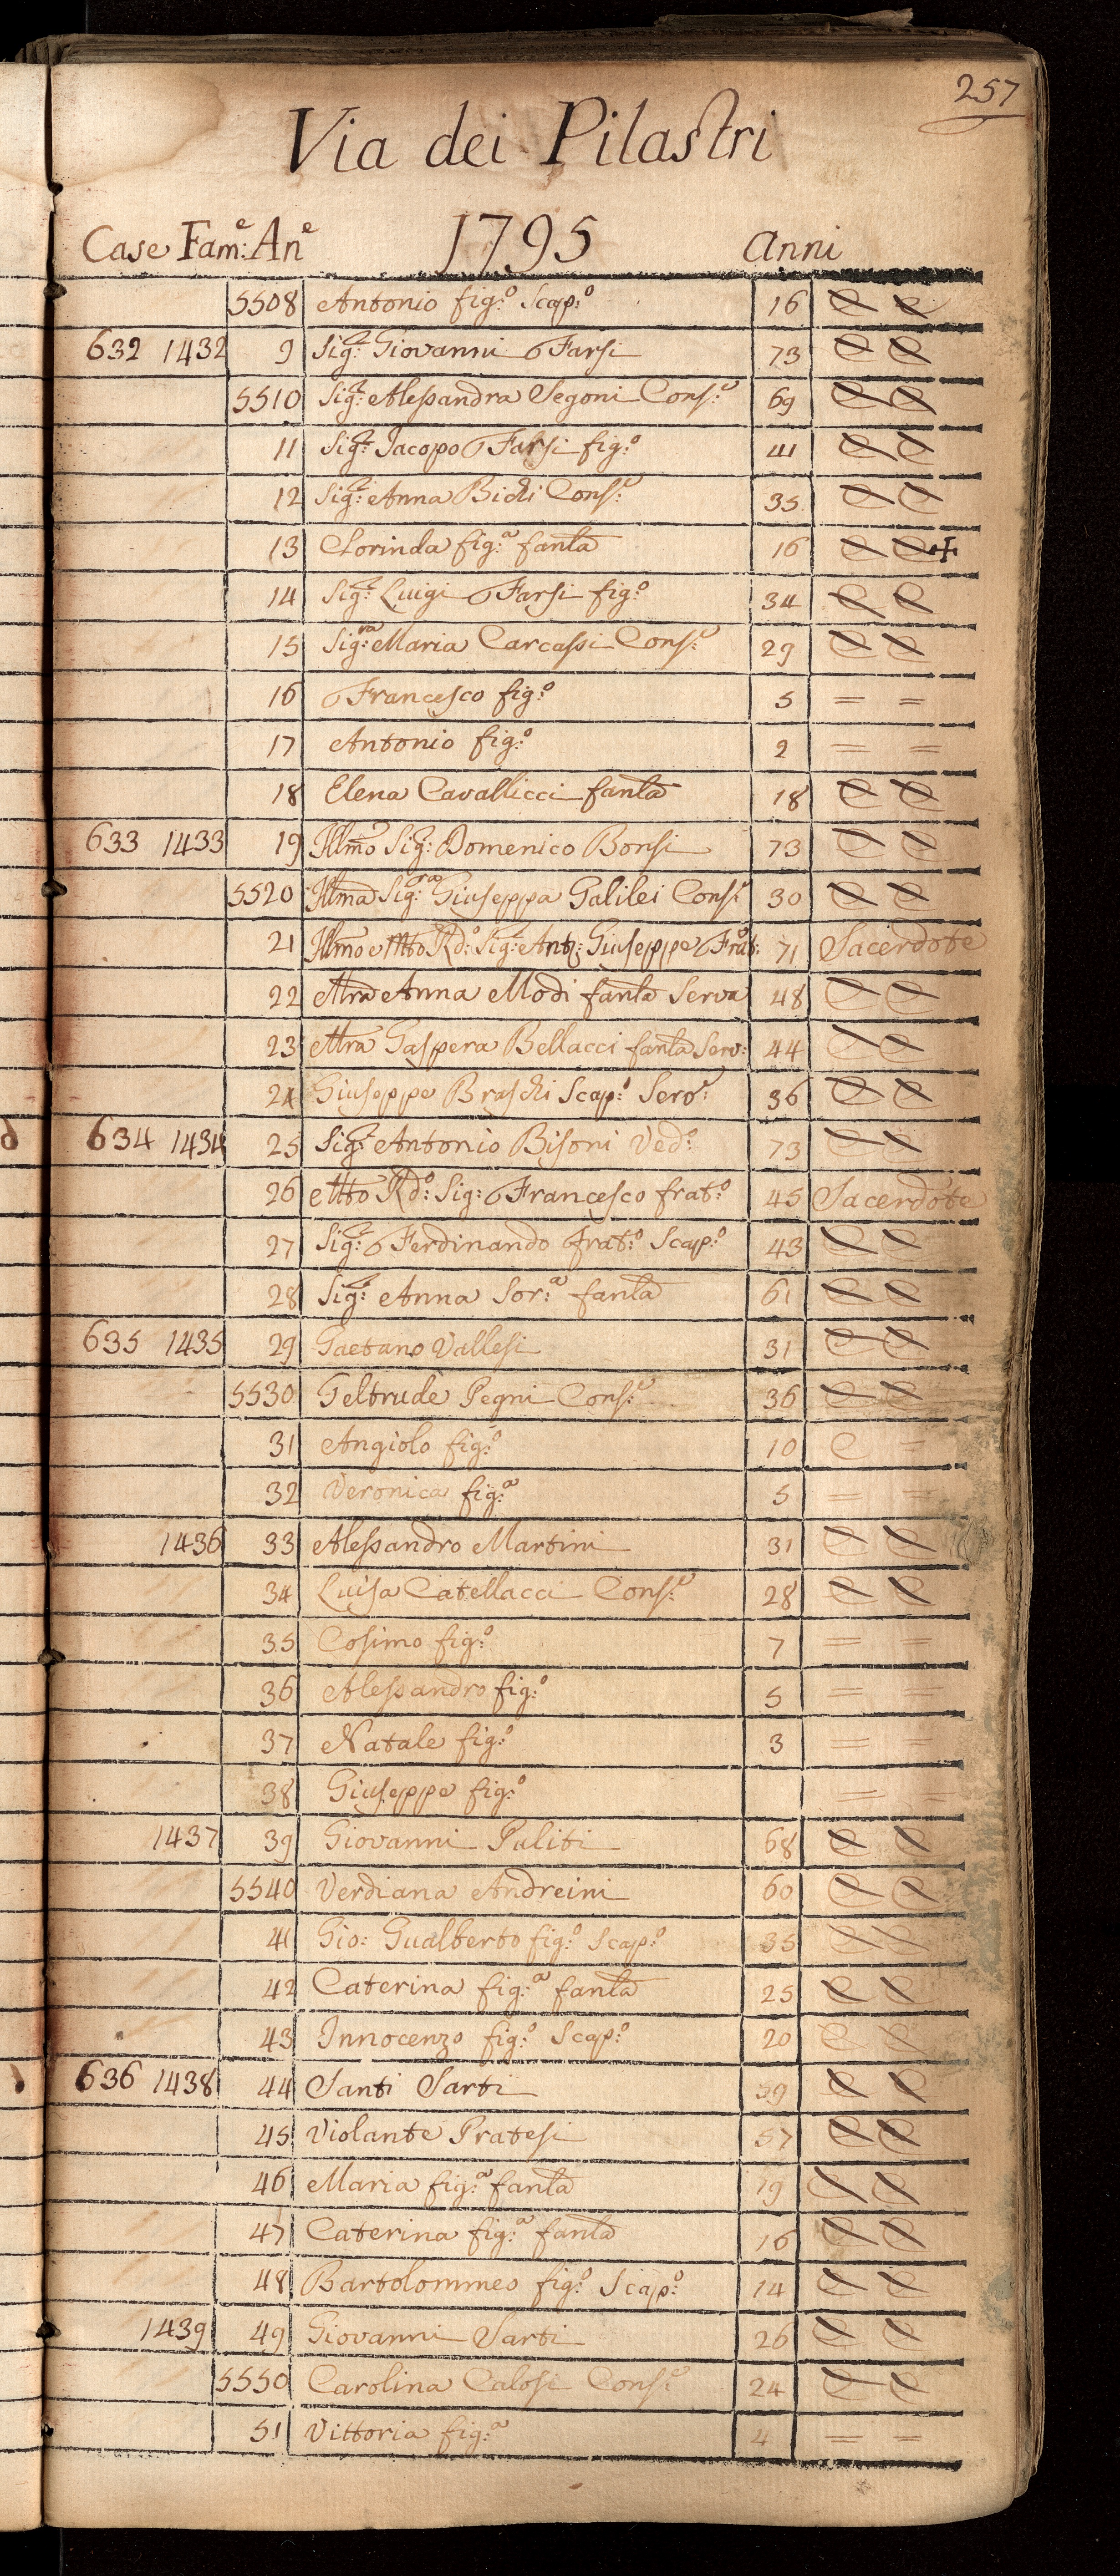 257
Via dei Pilastri
Case Fam:e An:e 1795 Anni
5508 Antonio fig:o Scap:o 16 C C
632 1432 9 Sig:r Giovanni Farsi 73 C C
5510 Sig:ra Alessandra Segoni Cons:e 69 C C
11 Sig:r Jacopo Farsi fig:o 41 C C
12 Sig:ra Anna Bichi Cons:e 35 C C
13 Clorinda fig:a fanla 16 C C +
14 Sig:r Luigi Farsi fig:o 34 C C
15 Sig:ra Maria Carcassi Cons:e 29 C C
16 Francesco fig:o 5 = =
17 Antonio fig:o 2 = =
18 Elena Cavallicci fanla 18 C C
633 1433 19 Illmo Sig:r Domenico Bonsi 73 C C
5520 Illma Sig:ra Giuseppa Galilei Cons:e 30 C C
21 Illmo Mto Rdo: Sig:r Ant:o Giuseppe Frat:o 71 Sacerdote
22 Mra Anna Modi fanla Serva 48 C C
23 Mra Gaspera Bellacci fanla Serv: 44 C C
24 Giuseppe Braschi Scap:o Serv:e 36 C C
634 1434 25 Sig:r Antonio Bisoni Ved:o 73 C C
26 Mto Rdo: Sig: Francesco frat:o 45 Sacerdote
27 Sig:r Ferdinando frat:o Scap:o 43 C C
28 Sig:ra Anna Sor:a fanla 61 C C
635 1435 29 Gaetano Vallesi 31 C C
5530 Geltrude Pegni Cons:e 36 C C
31 Angiolo fig:o 10 C =
32 Veronica fig:a 5 = =
1436 33 Alessandro Martini 31 C C
34 Luisa Catellacci Cons:e 28 C C
35 Cosimo fig:o 7 = =
36 Alessandro fig:o 5 = =
37 Natale fig:o 3 = =
38 Giuseppe fig:o = =
1437 39 Giovanni Puliti 68 C C
5540 Verdiana Andreini 60 C C
41 Gio: Gualberto fig:o Scap:o 35 C C
42 Caterina fig:a fanla 25 C C
43 Innocenzo fig:o Scap:o 20 C C
636 1438 44 Santi Sarti 59 C C
45 Violante Pratesi 57 C C
46 Maria fig:a fanla 19 C C
47 Caterina fig:a fanla 16 C C
48 Bartolommeo fig:o Scap:o 14 C C
1439 49 Giovanni Sarti 26 C C
5550 Carolina Calosi Cons:e 24 C C
51 Vittoria fig:a 4 = =